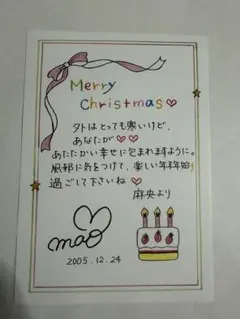 Merry
Christmas♡
外はとっても寒いけど、
あなたが♡♡
あたたかい幸せに包まれますように。
風邪に気をつけて、楽しい年末年始を
過ごして下さいね♡
麻央より
mao
2005.12.24